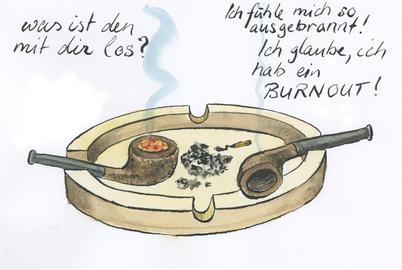 was ist den
mit dir los?
Ich fühle mich so
ausgebrannt!
Ich glaube, ich
hab ein
BURNOUT!